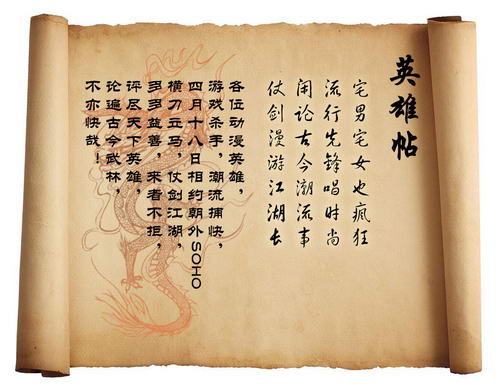 英雄帖
宅男宅女也疯狂
流行先锋唱时尚
闲论古今潮流事
仗剑漫游江湖长
各位动漫英雄，
游戏杀手，潮流捕快，
四月十八日相约朝外SOHO
横刀立马，仗剑江湖，
多多益善，来者不拒，
评尽天下英雄，
论遍古今武林，
不亦快哉！